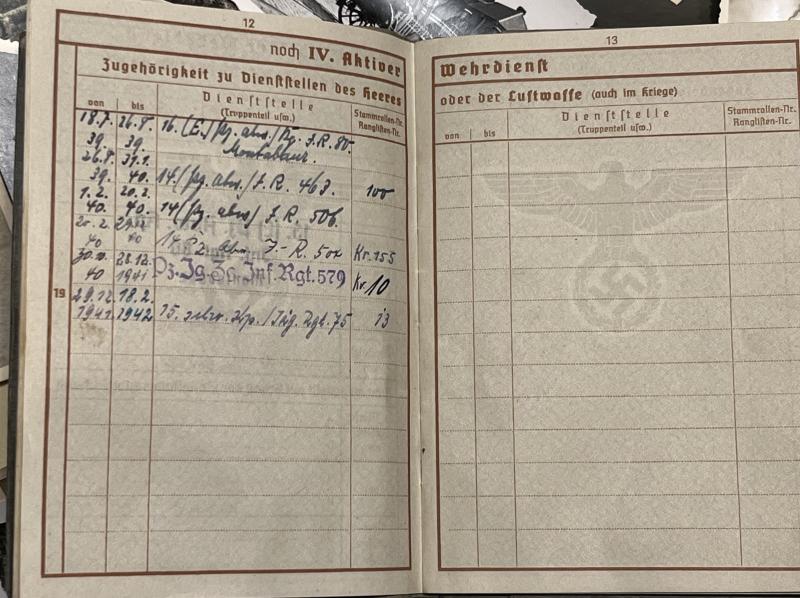 12
noch IV. Aktiver
Zugehörigkeit zu Dienststellen des Heeres
von bis Dienststelle Stammrollen-Nr.
(Truppenteil usw.) Ranglisten-Nr.
18.7. 26.8. 16. (E.) Pz. abw. / J.R. 80.
39. 39. Montabaur.
26.8. 31.1.
39. 40. 14. (Pz. abw.) J.R. 463. 100
1.2. 20.2.
40. 40. 14 (Pz. abw) J.R. 506.
20.2.
40 40 14. Pz. Abw. J.-R. Kr. 155
28.12. Pz.Jg. Inf.Rgt.579 Kr. 10
40 1941
29.12. 18.2.
19 1941. 1942 15. schw. Kp. / Jäg. Rgt. 75 13
13
Wehrdienst
oder der Luftwaffe (auch im Kriege)
von bis Dienststelle Stammrollen-Nr.
(Truppenteil usw.) Ranglisten-Nr.